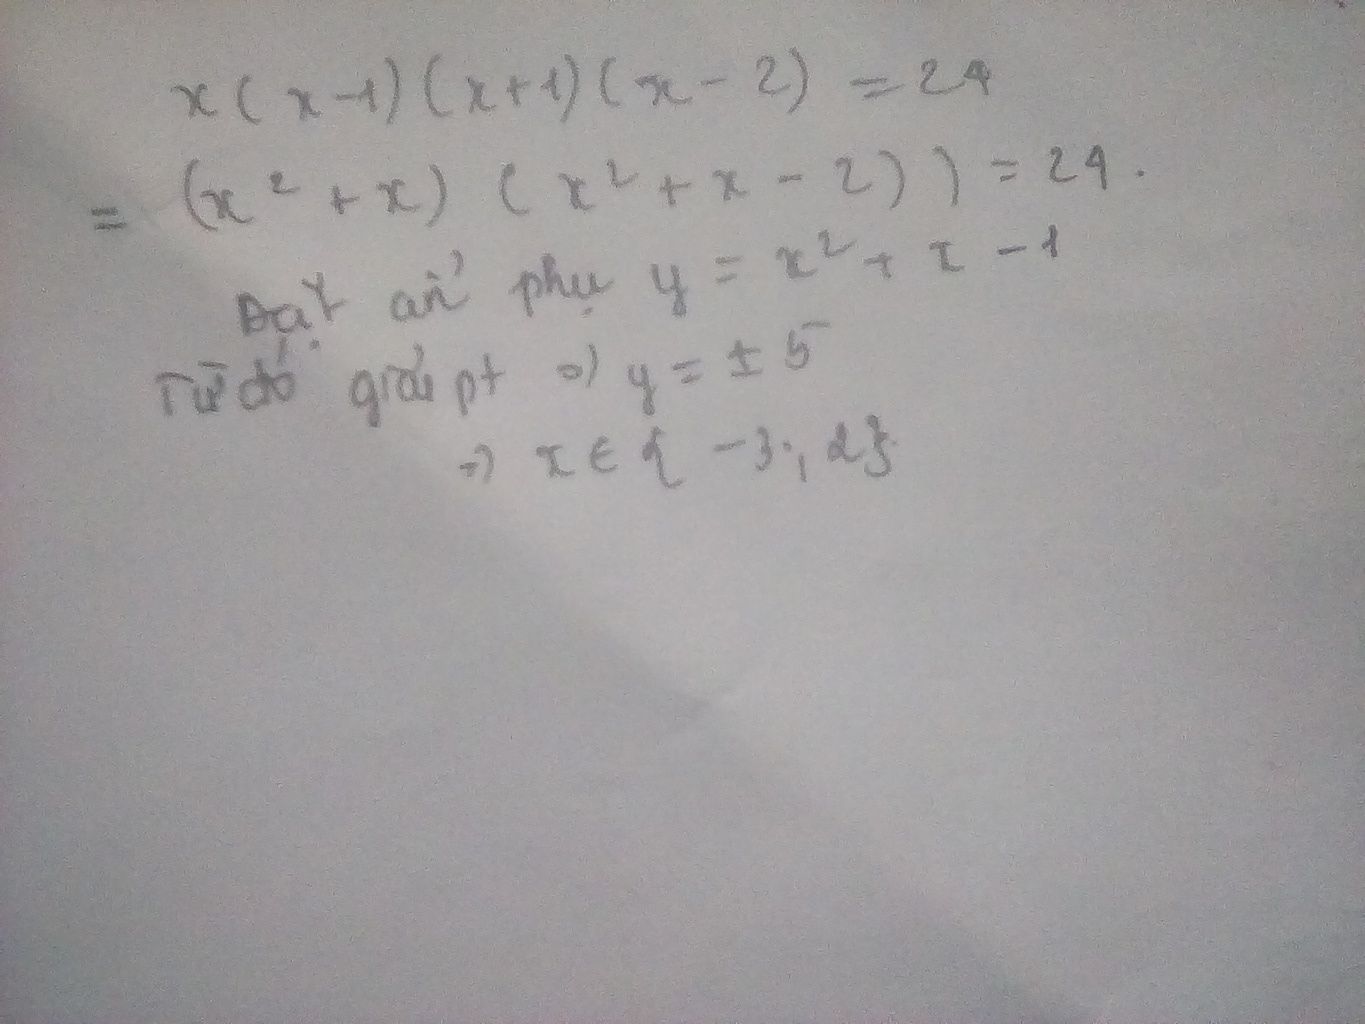 x(x-1)(x+1)(x-2) = 24
= (x² + x) (x² + x - 2)) = 24.
Đặt ẩn phụ y = x² + x - 1
Từ đó giải pt => y = ± 5
=> x ∈ { -3; 2}